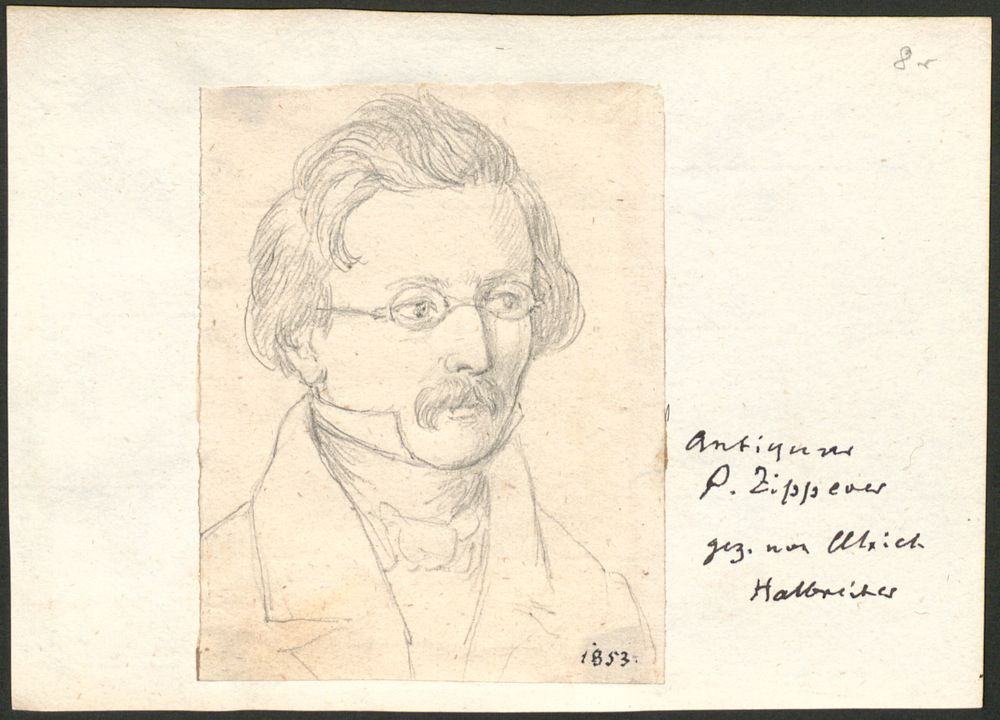 8r
Antiquar
P. Zipperer
gez. von Ulrich
Halbreiter
1853.